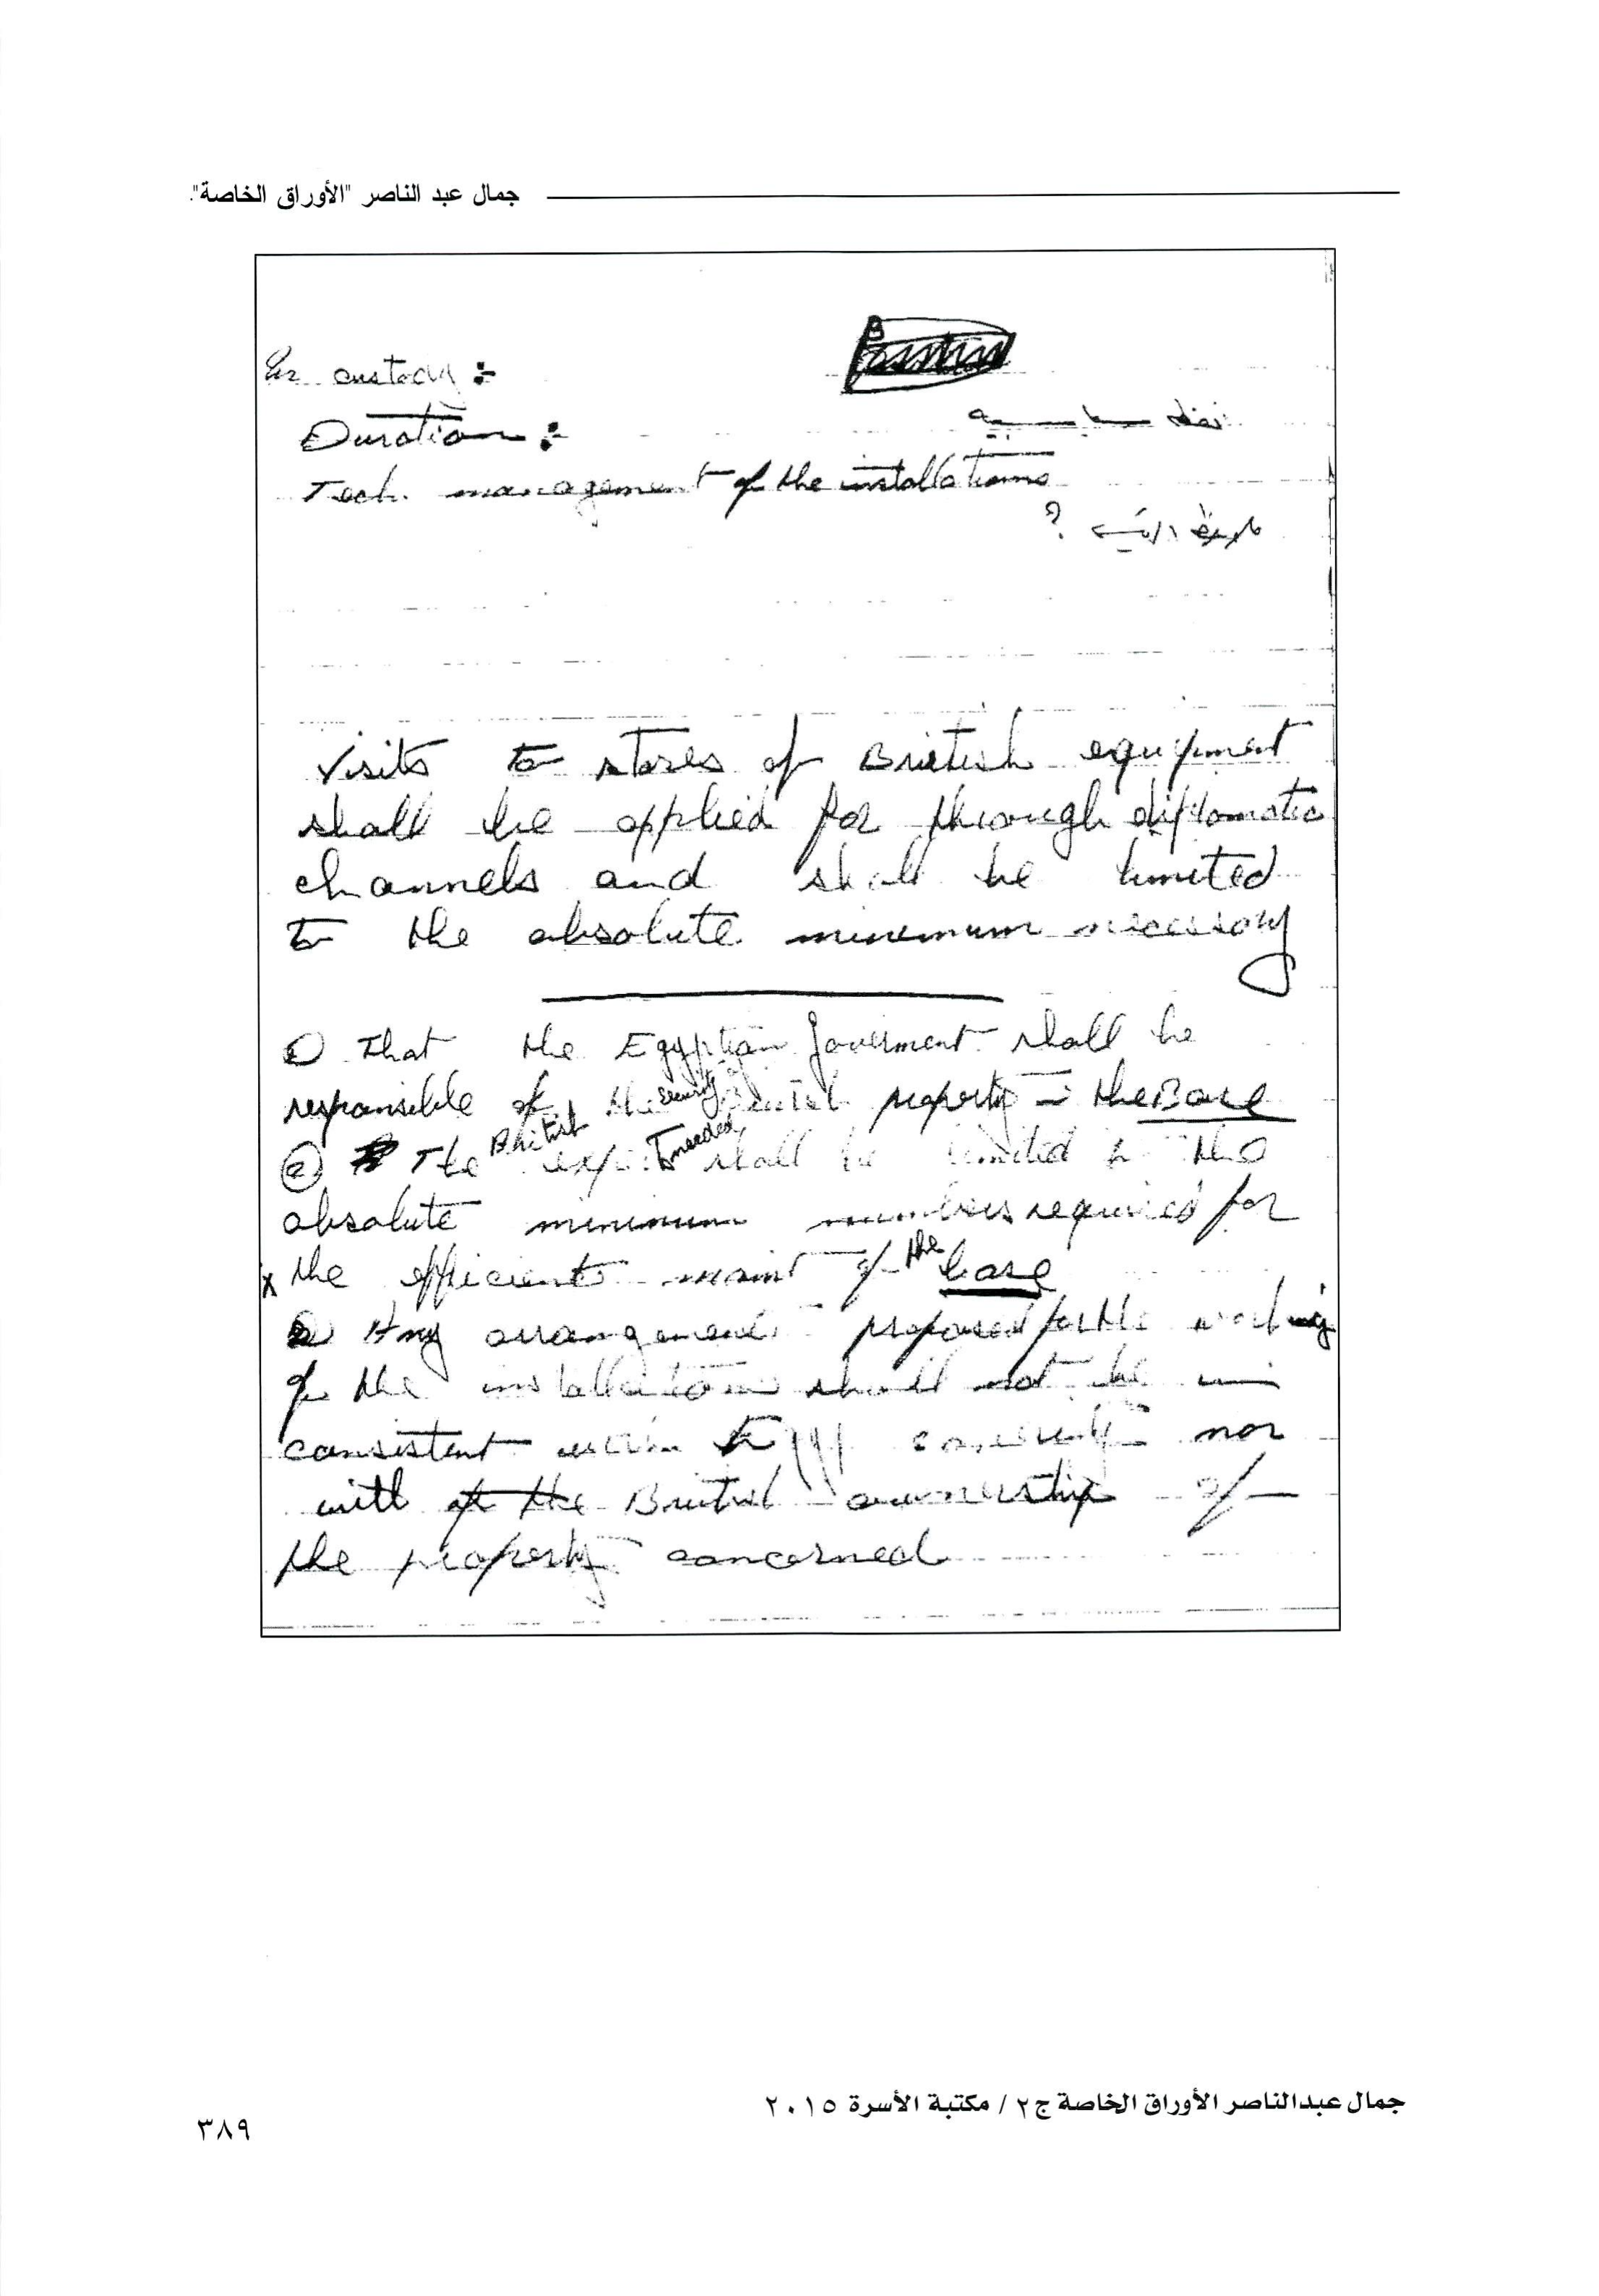 جمال عبد الناصر "الأوراق الخاصة".
custody :-
Duration :-
Tech. management of the installations
?
Visits to stores of British equipment
shall be applied for through diplomatic
channels and shall be limited
to the absolute minimum necessary
① That the Egyptian Goverment shall be
responsible of the security British property in the Base
② The British experts needed shall be limited to the
absolute minimum numbers required for
x the efficient maint of the base
Any arrangement proposed for the working
of the installations shall not be in
consistent with Egy nor
with of the British ownership of
the property concerned
جمال عبدالناصر الأوراق الخاصة ج٢ / مكتبة الأسرة ٢٠١٥
٣٨٩